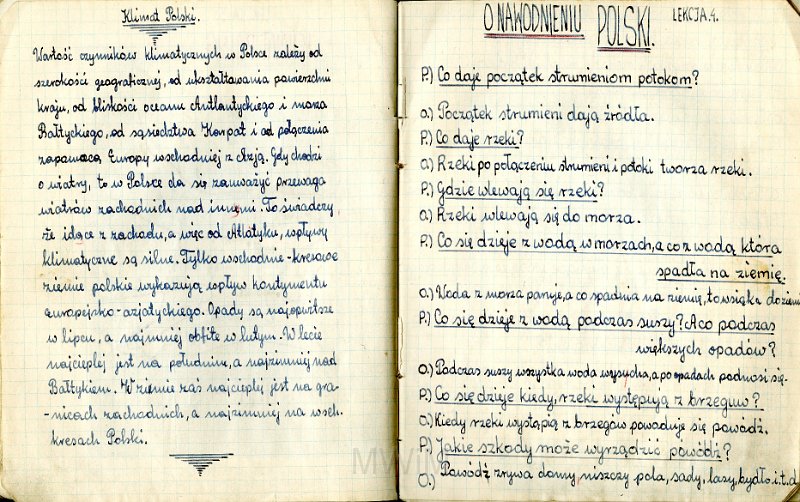 Klimat Polski.
Wartość czynników klimatycznych w Polsce zależy od
szerokości geograficznej, od ukształtowania powierzchni
kraju, od bliskości oceanu Antlantyckiego i morza
Bałtyckiego, od sąsiedztwa Karpat i od połączenia
zapomocą Europy wschodniej z Azją. Gdy chodzi
o wiatry, to w Polsce da się zauważyć przewaga
wiatrów zachodnich nad innemi. To świadczy,
że idące z zachodu, a więc od Atlatyku, wpływy
klimatyczne są silne. Tylko wschodnie-kresowe
ziemie polskie wykazują wpływ kontymentu
europejsko-azjatyckiego. Opady są najobfitsze
w lipcu, a najmniej obfite w lutym. W lecie
najcieplej jest na południu, a najzimniej nad
Bałtykiem. W ziemie zaś najcieplej jest na gra-
-nicach zachodnich, a najzimniej na wsch.
kresach Polski.
O NAWODNIENIU POLSKI. LEKCJA 4.
P.) Co daje początek strumieniom potokom?
O.) Początek strumieni dają źródła.
P.) Co daje rzeki?
O.) Rzeki po połączeniu strumieni i potoki tworza rzeki.
P.) Gdzie wlewają się rzeki?
O.) Rzeki wlewają się do morza.
P.) Co się dzieje z wodą w morzach, a co z wodą która
spadła na ziemię.
O.) Woda z morza paruje, a co spadnia na ziemię, to wsiąka do ziemi
P.) Co się dzieje z wodą podczas suszy? A co podczas
większych opadów?
O.) Podczas suszy wszystka woda wysucha, a po opadach podnosi się.
P.) Co się dzieje kiedy, rzeki występują z brzegów?
O.) Kiedy rzeki wystąpią z brzegów powoduje się powódź.
P.) Jakie szkody może wyrządzić powódź?
O.) Powódź zrywa domy, niszczy pola, sady, lasy, bydło i.t.d